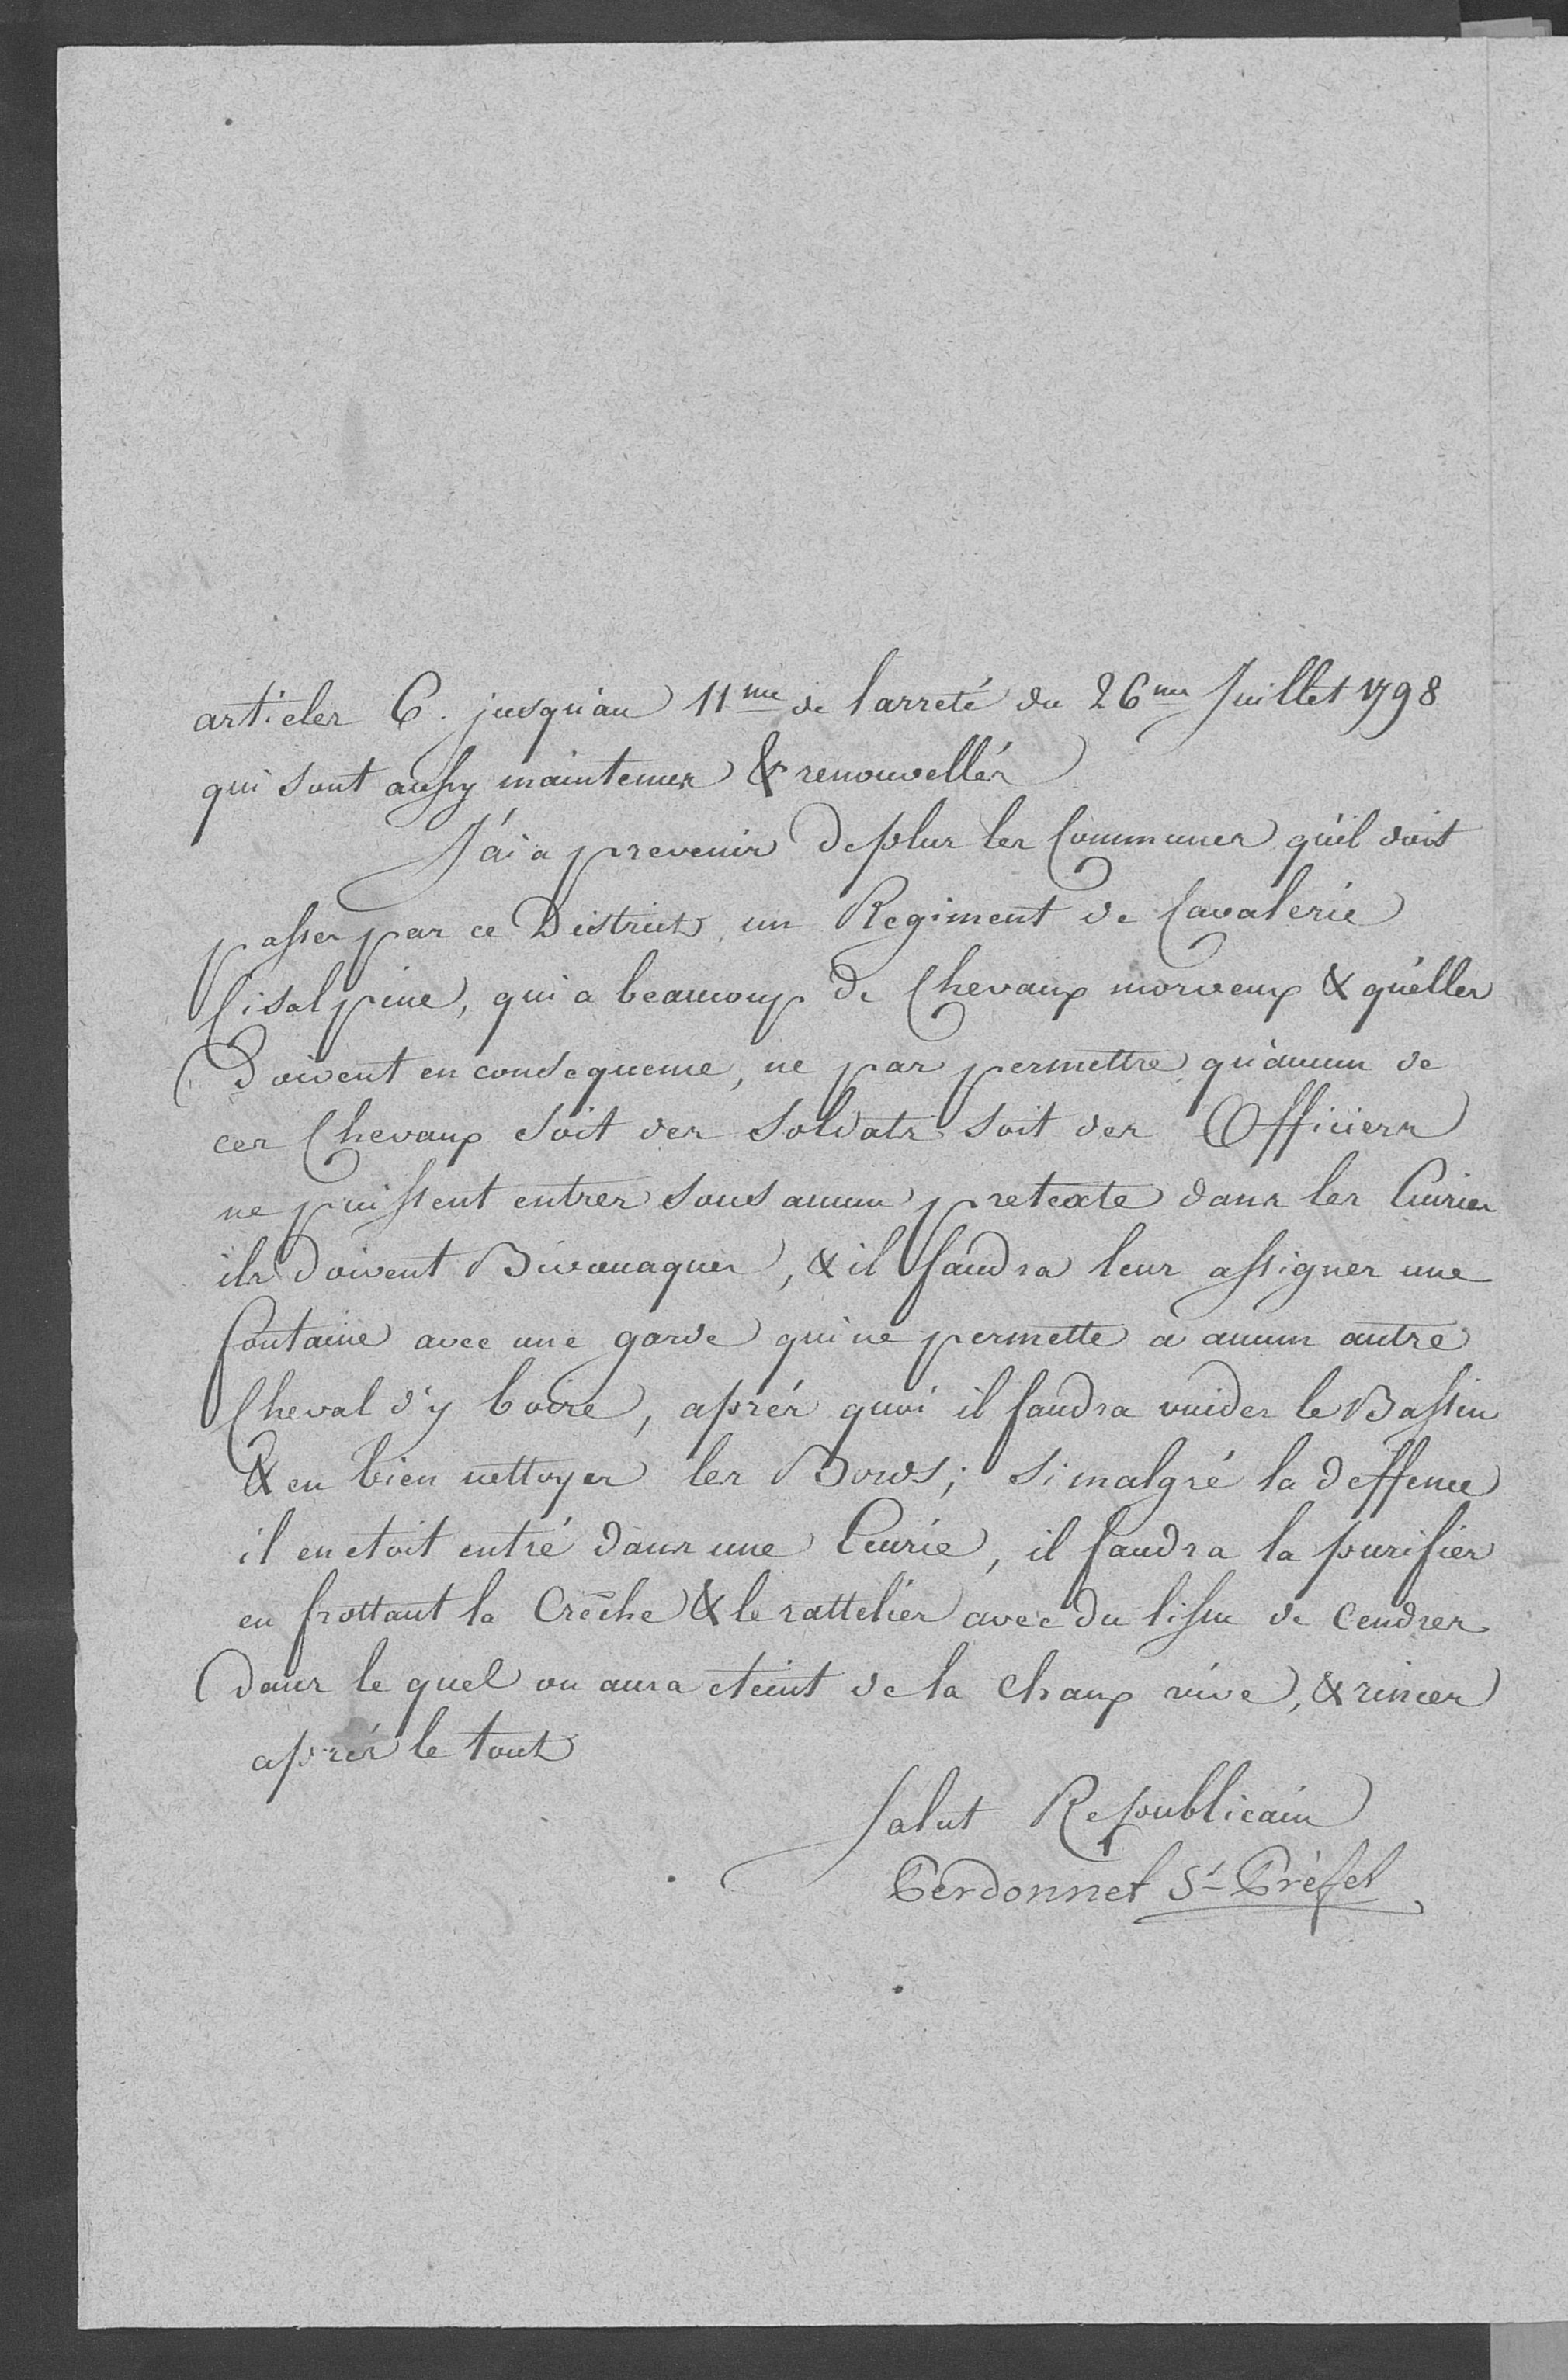 articles 6. jusqu'au 11me de l'arreté du 26me Juillet 1798
qui sont aussy maintenues & renouvellés
J'ai a prevenir de plus les Communes qu'il doit
passer par ce District un Regiment de Cavalerie
Cisalpine, qui a beaucoup de Chevaux morveux & qu'elles
doivent en consequence, ne pas permettre qu'aucun de
ces Chevaux soit des soldats soit des Officiers
ne puissent entrer sous aucun pretexte dans les Ecuries
ils doivent Bivouaquer, & il faudra leur assigner une
fontaine avec une garde qui ne permette a aucun autre
Cheval d'y boire, après quoi il faudra vuider le Bassin
& en bien nettoyer les Bords; si malgré la deffence
il en etoit entré dans une Ecurie, il faudra la purifier
en frottant la Crêche & le rattelier avec du lissu de Cendres
dans le quel on aura eteint de la chaux vive, & rincer
après le tout
Salut Republicain
Perdonnet S-Préfet